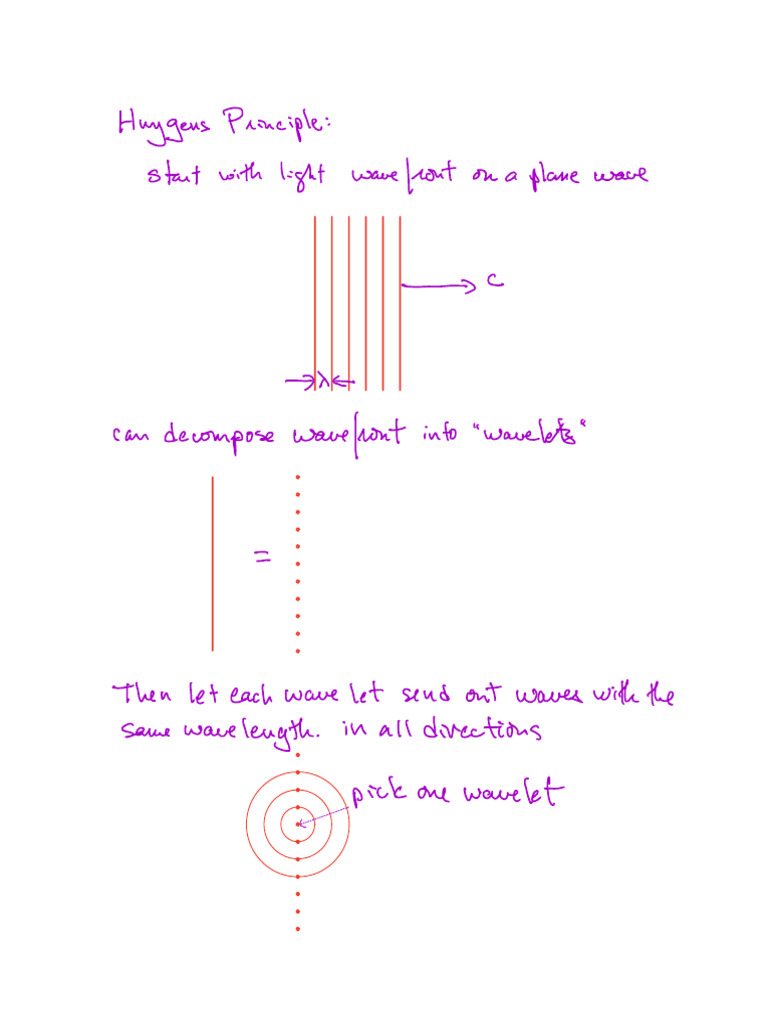 Huygens Principle:
start with light wavefront on a plane wave
c
λ
can decompose wavefront into "wavelets"
=
Then let each wavelet send out waves with the
same wavelength. in all directions
pick one wavelet